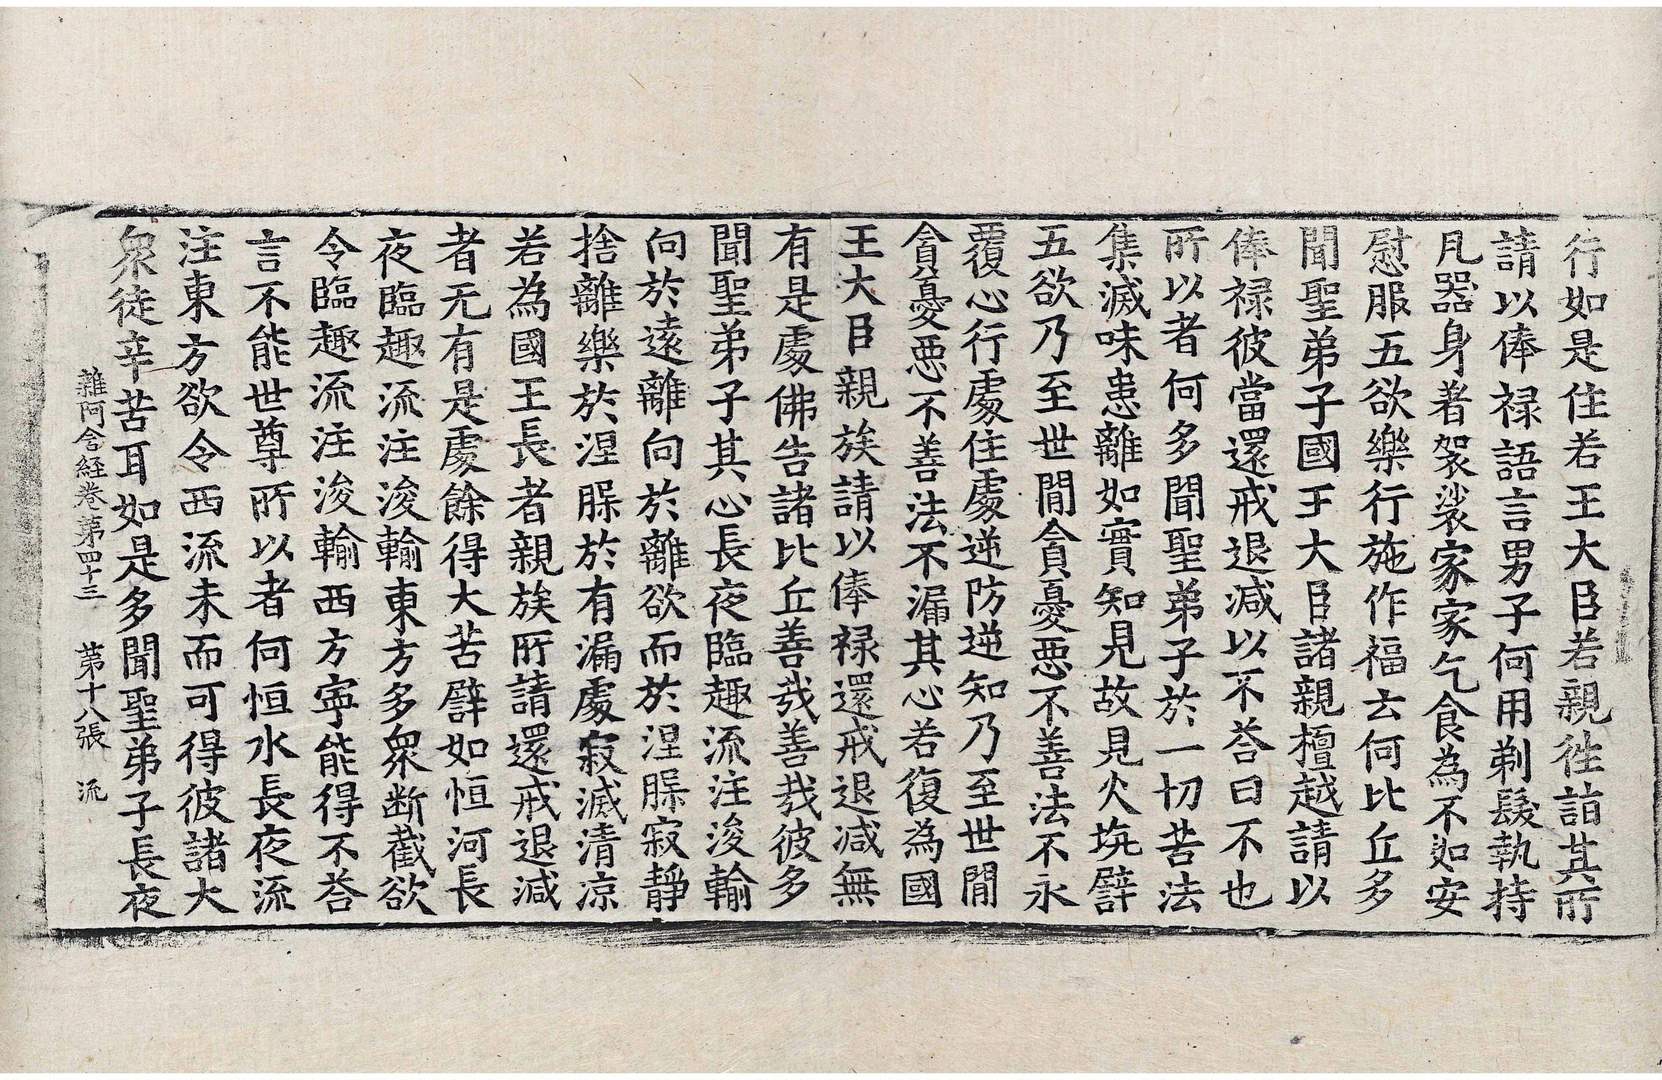 行如是住若王大臣若親徃詣其所
請以俸禄語言男子何用剃髮執持
凡器身著袈裟家家乞食為不如安
慰服五欲樂行施作福云何比丘多
聞聖弟子國王大臣諸親檀越請以
俸禄彼當還戒退減以不荅曰不也
所以者何多聞聖弟子於一切苦法
集滅味患離如實知見故見火坑譬
五欲乃至世閒貪憂惡不善法不永
覆心行處住處逆防逆知乃至世閒
貪憂惡不善法不漏其心若復為國
王大臣親族請以俸禄還戒退減無
有是處佛告諸比丘善哉善哉彼多
聞聖弟子其心長夜臨趣流注浚輸
向於遠離向於離欲而於涅槃寂靜
捨離樂於涅槃於有漏處寂滅清凉
若為國王長者親族所請還戒退減
者无有是處餘得大苦譬如恒河長
夜臨趣流注浚輸東方多衆断截欲
令臨趣流注浚輸西方寧能得不荅
言不能世尊所以者何恒水長夜流
注東方欲令西流未而可得彼諸大
衆徒辛苦耳如是多聞聖弟子長夜
雜阿含経卷第四十三 第十八張 流